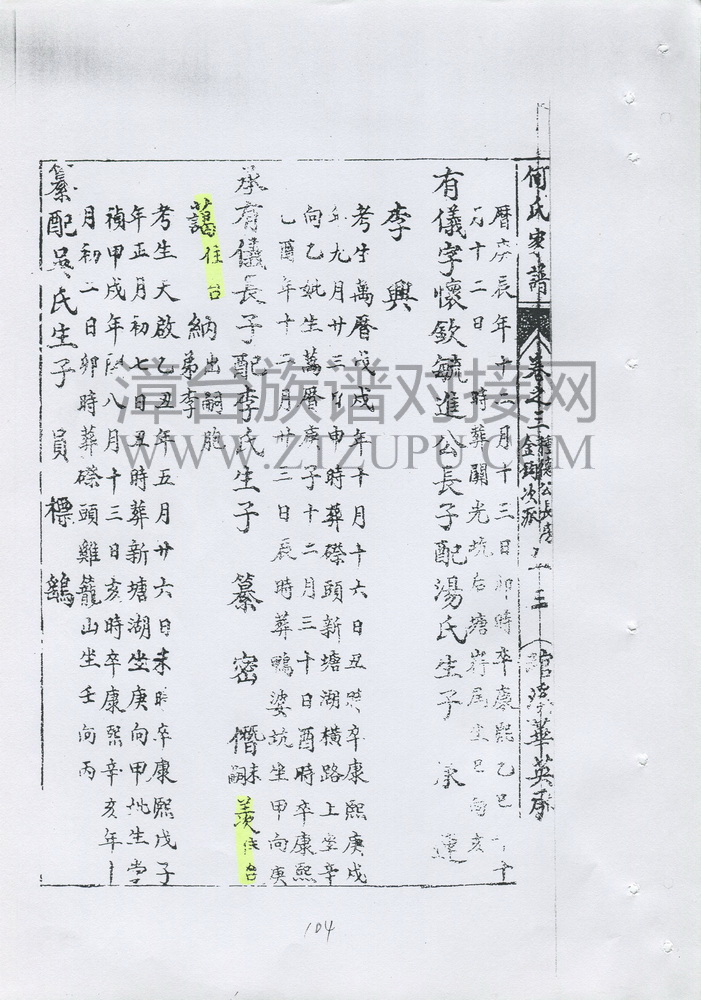 何氏家譜 卷之三 金 次派 三 華英承
曆庚辰年十二月十三日卯時卒康熙乙巳
月十二日 時葬關光坑右塘 尾坐巳向亥
有儀字懷欽毓進公長子配湯氏生子 承 運
李 興
考生萬曆戊戌年十月十六日丑時卒康熙庚戌
年九月廿三日申時葬磜頭新塘湖橫路上坐辛
向乙妣生萬曆庚子十二月三十日酉時卒康熙
己酉年十二月廿二日辰時葬鴨婆坑坐甲向庚
承有儀長子配李氏生子 纂 密 僭 羨住台
藹住台 納出嗣胞弟李
考生天啟乙丑年五月廿六日未時卒康熙戊子
年正月初七日丑時葬新塘湖坐庚向甲妣生崇
禎甲戌年閏八月十三日亥時卒康熙辛亥年十
月初二日卯時葬磜頭雞籠山坐壬向丙
纂配吳氏生子 員 標 鷂
漳台族谱对接网
WWW.ZTZUPU.COM
104